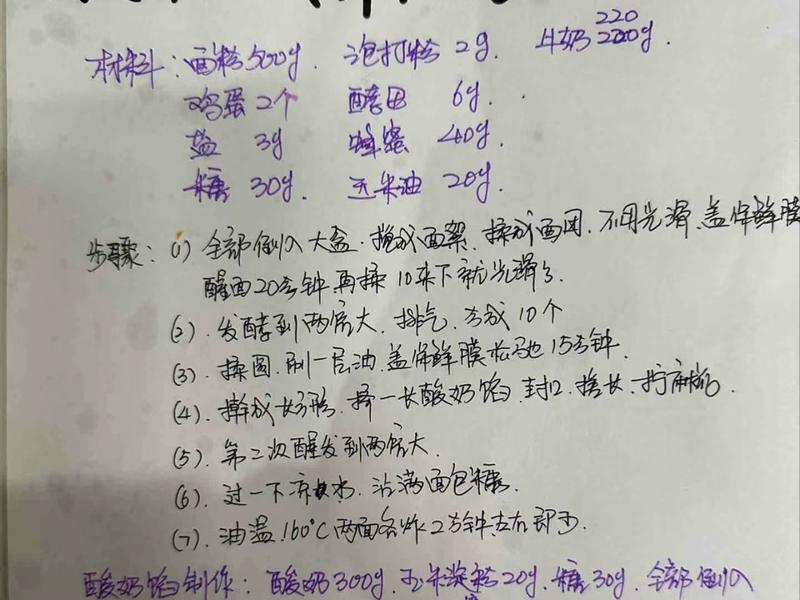 材料：面粉500g. 泡打粉 2g. 牛奶 220g.
鸡蛋2个 酵母 6g.
盐 3g 蜂蜜 40g.
糖 30g. 玉米油 20g.
步骤：(1) 全部倒入大盆. 搅成面絮. 揉成面团. 不用光滑. 盖保鲜膜
醒面20分钟再揉10来下就光滑了.
(2). 发酵到两倍大. 排气. 分成10个
(3). 揉圆. 刷一层油. 盖保鲜膜松弛15分钟.
(4). 擀成长方形. 挤一长酸奶馅. 封口. 搓长. 拧麻花.
(5). 第二次醒发到两倍大.
(6). 过一下凉水. 沾满面包糠.
(7). 油温160℃两面各炸2分钟左右即可.
酸奶馅制作：酸奶300g. 玉米淀粉20g. 糖30g. 全部倒入